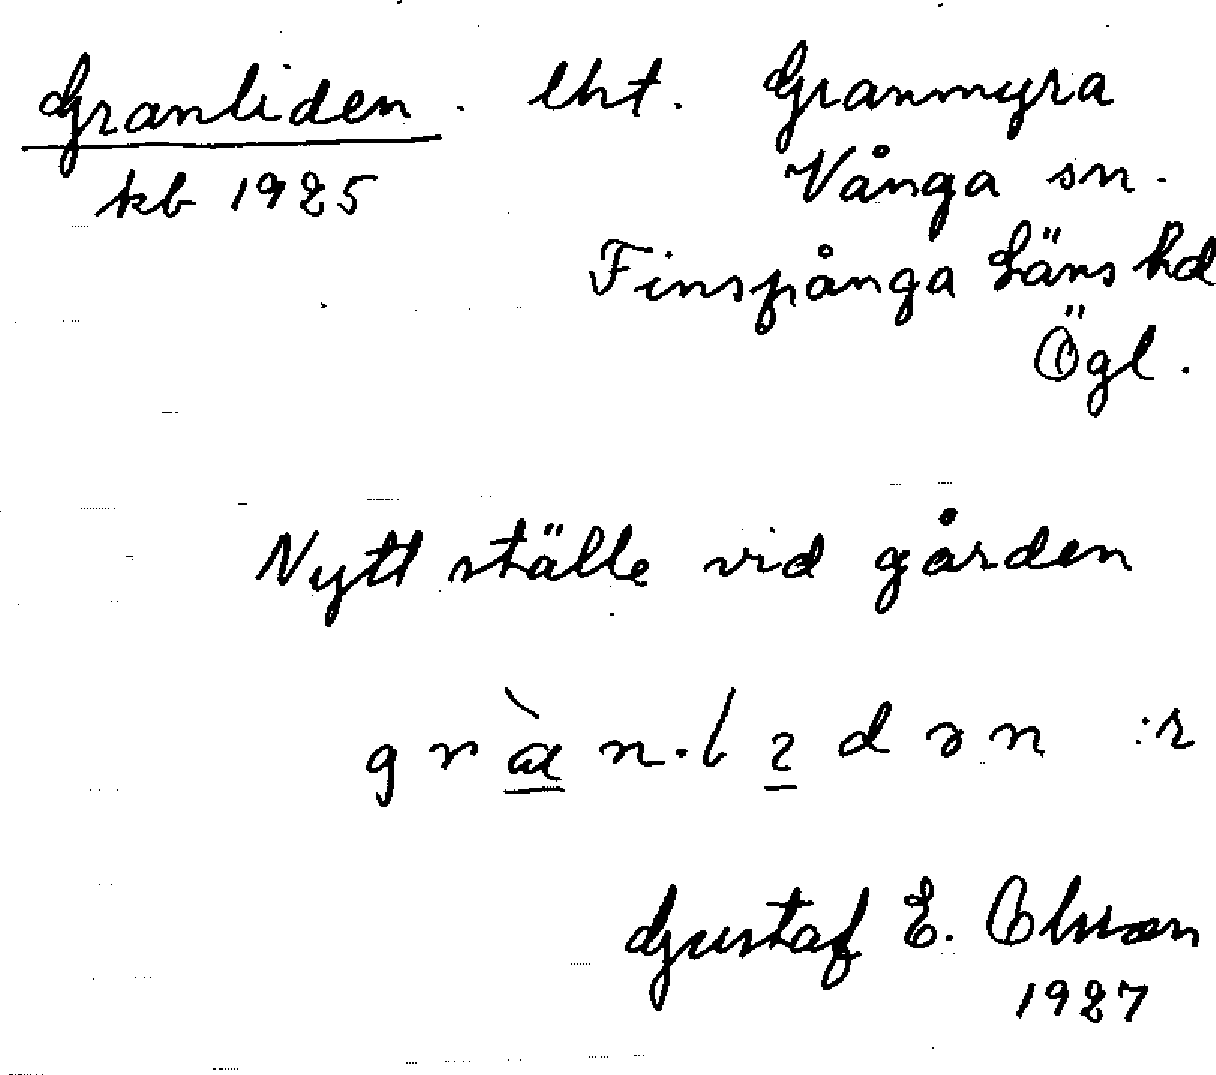 Granliden. lht. Granmyra
kb 1925 Vånga sn.
Finspånga Läns hd
Ögl.
Nytt ställe vid gården
Gustaf E. Olsson
1927